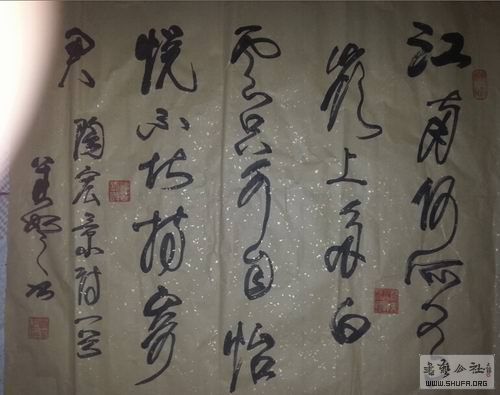 江南何所有
嶺上多白
雲只可自怡
悦不堪持寄
君
陶宏景詩一首
書藝公社
WWW.SHUFA.ORG